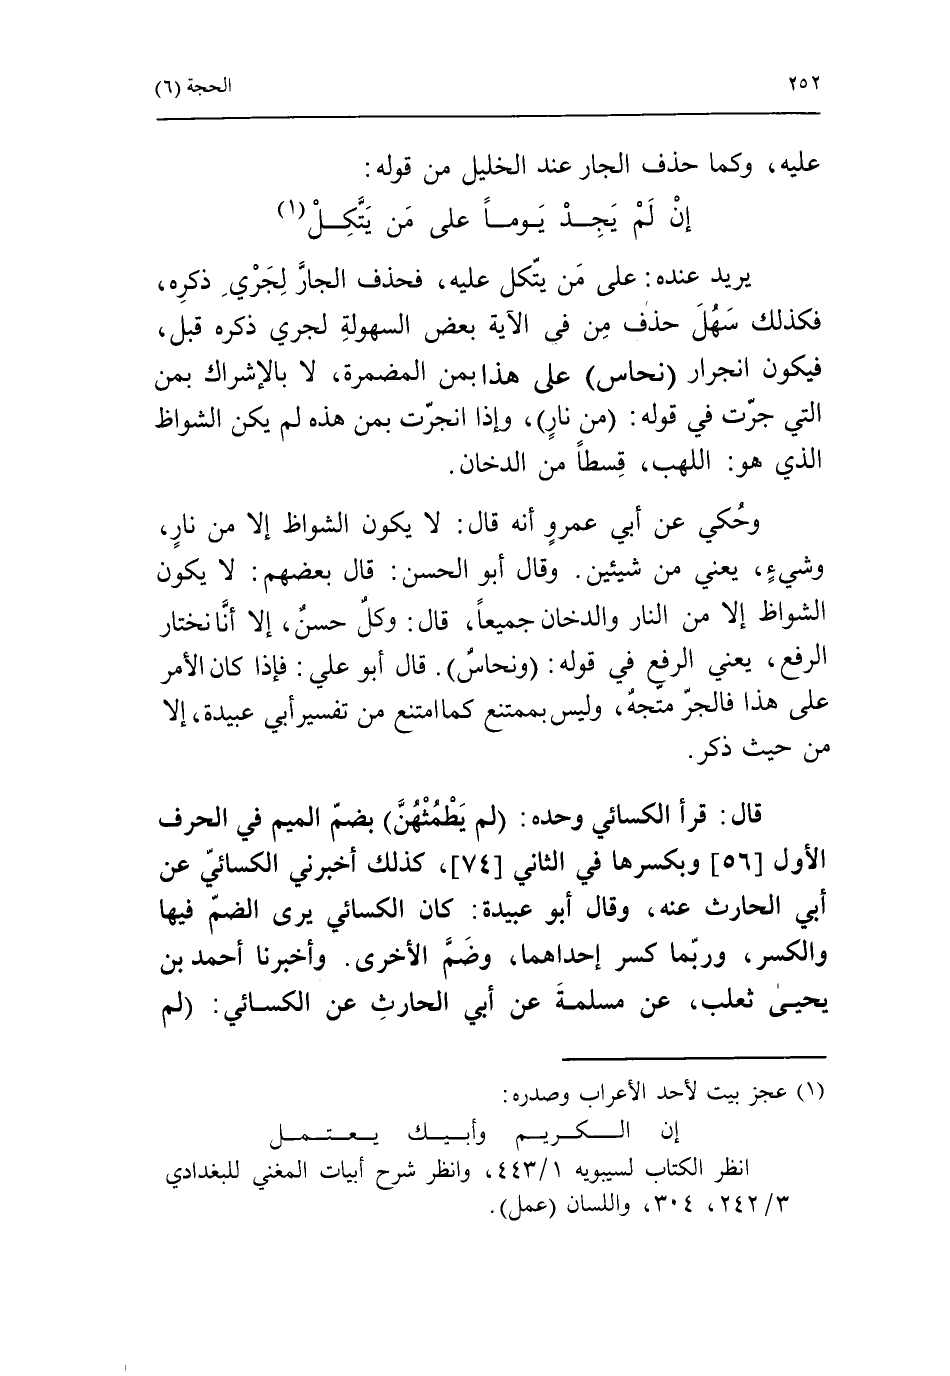 ٢٥٢
الحجة (٦)
عليه، وكما حذف الجار عند الخليل من قوله:
إنْ لَمْ يَجِـدْ يَـومـاً على مَن يَتَّكِـلْ(١)
يريد عنده: على مَن يتّكل عليه، فحذف الجارَّ لِجَرْيِ ذكرِه،
فكذلك سَهُلَ حذف مِن في الآية بعض السهولةِ لجري ذكره قبل،
فيكون انجرار (نحاس) على هذا بمن المضمرة، لا بالإشراك بمن
التي جرّت في قوله: (من نارٍ)، وإذا انجرّت بمن هذه لم يكن الشواظ
الذي هو: اللهب، قِسطاً من الدخان.
وحُكي عن أبي عمروٍ أنه قال: لا يكون الشواظ إلا من نارٍ،
وشيءٍ، يعني من شيئين. وقال أبو الحسن: قال بعضهم: لا يكون
الشواظ إلا من النار والدخان جميعاً، قال: وكلٌ حسنٌ، إلا أنَّا نختار
الرفع، يعني الرفع في قوله: (ونحاسٌ). قال أبو علي: فإذا كان الأمر
على هذا فالجرّ متّجهٌ، وليس بممتنع كما امتنع من تفسير أبي عبيدة، إلا
من حيث ذكر.
قال: قرأ الكسائي وحده: (لم يَطْمُثْهُنَّ) بضمّ الميم في الحرف
الأول [٥٦] وبكسرها في الثاني [٧٤]، كذلك أخبرني الكسائيّ عن
أبي الحارث عنه، وقال أبو عبيدة: كان الكسائي يرى الضمّ فيها
والكسر، وربّما كسر إحداهما، وضَمَّ الأخرى. وأخبرنا أحمد بن
يحيىٰ ثعلب، عن مسلمةَ عن أبي الحارثِ عن الكسائي: (لم
(١) عجز بيت لأحد الأعراب وصدره:
إن الـكـريـم وأبـيـك يـعـتـمـل
انظر الكتاب لسيبويه ٤٤٣/١، وانظر شرح أبيات المغني للبغدادي
٢٤٢/٣، ٣٠٤، واللسان (عمل).